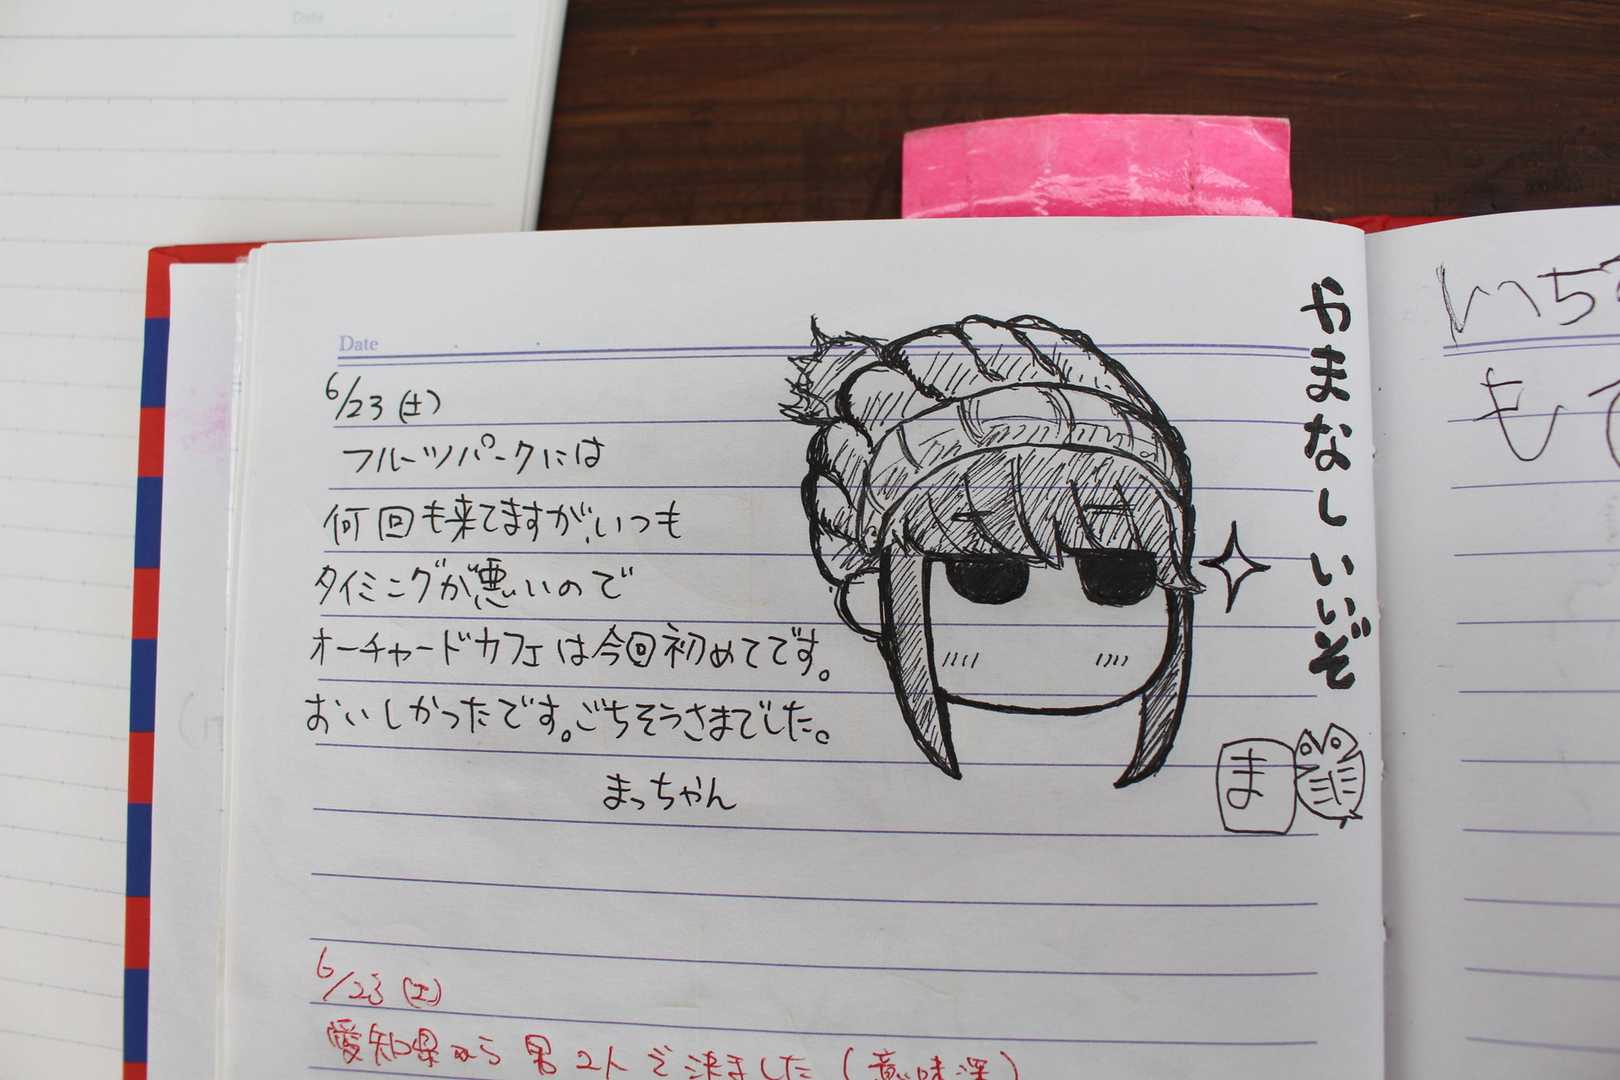 Date
Date
6/23(土)
フルーツパークには
何回も来てますが、いつも
タイミングが悪いので
オーチャードカフェは今回初めてです。
おいしかったです。ごちそうさまでした。
まっちゃん
やまなしいいぞ
ま
6/23(土)
愛知県から男2人で来ました(意味深)
いち
も